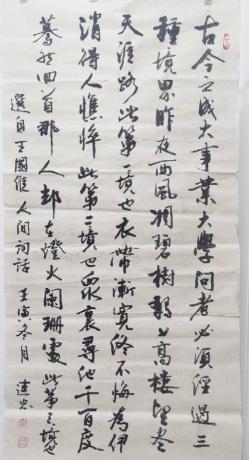 古今之成大事業大學問者必須經過三
種境界昨夜西風凋碧樹獨上高樓望盡
天涯路此第一境也衣帶漸寬終不悔為伊
消得人憔悴此第二境也眾裏尋他千百度
驀然回首那人却在燈火闌珊處此第三境也
選自王國維人间詞話 壬寅冬月